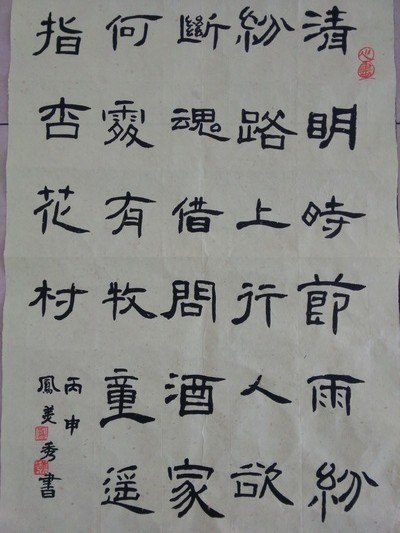 清明時節雨紛
紛路上行人欲
斷魂借問酒家
何處有牧童遙
指杏花村
丙申
鳳美秀書